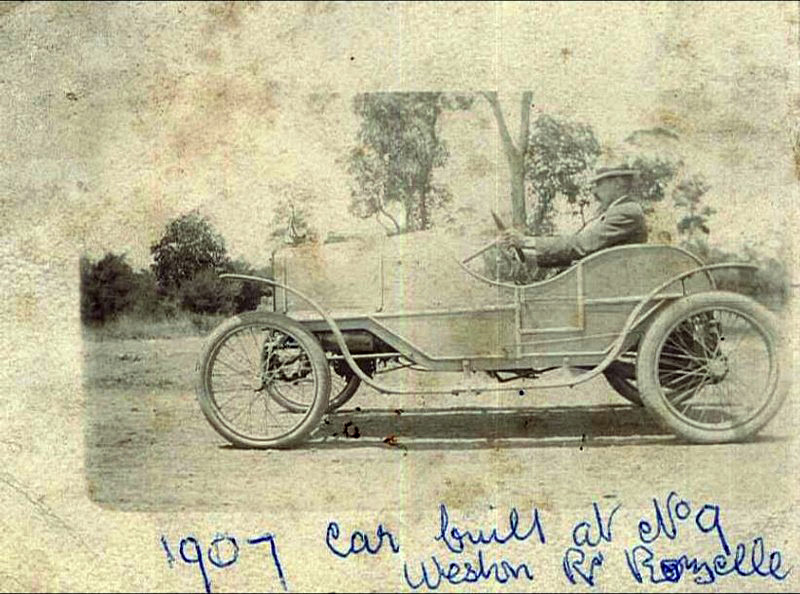 1907 car built at No 9
Weston Rd Rozelle